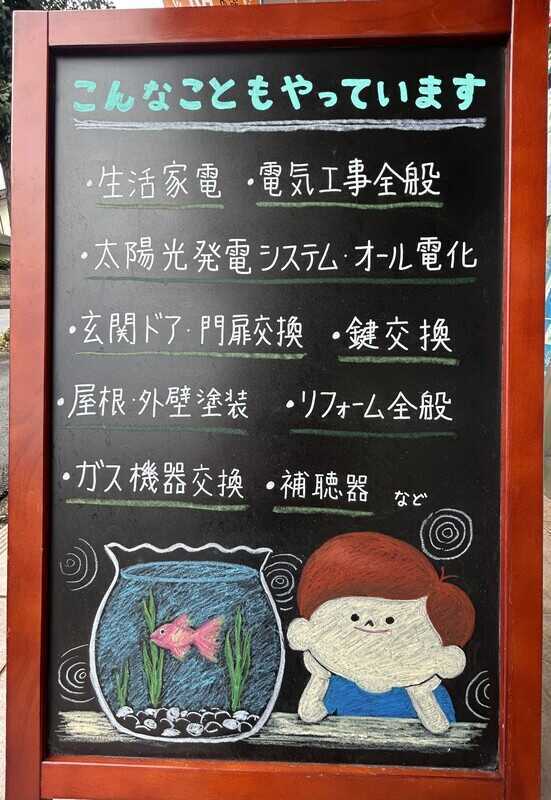 こんなこともやっています
・生活家電 ・電気工事全般
・太陽光発電システム・オール電化
・玄関ドア・門扉交換 ・鍵交換
・屋根・外壁塗装 ・リフォーム全般
・ガス機器交換 ・補聴器 など